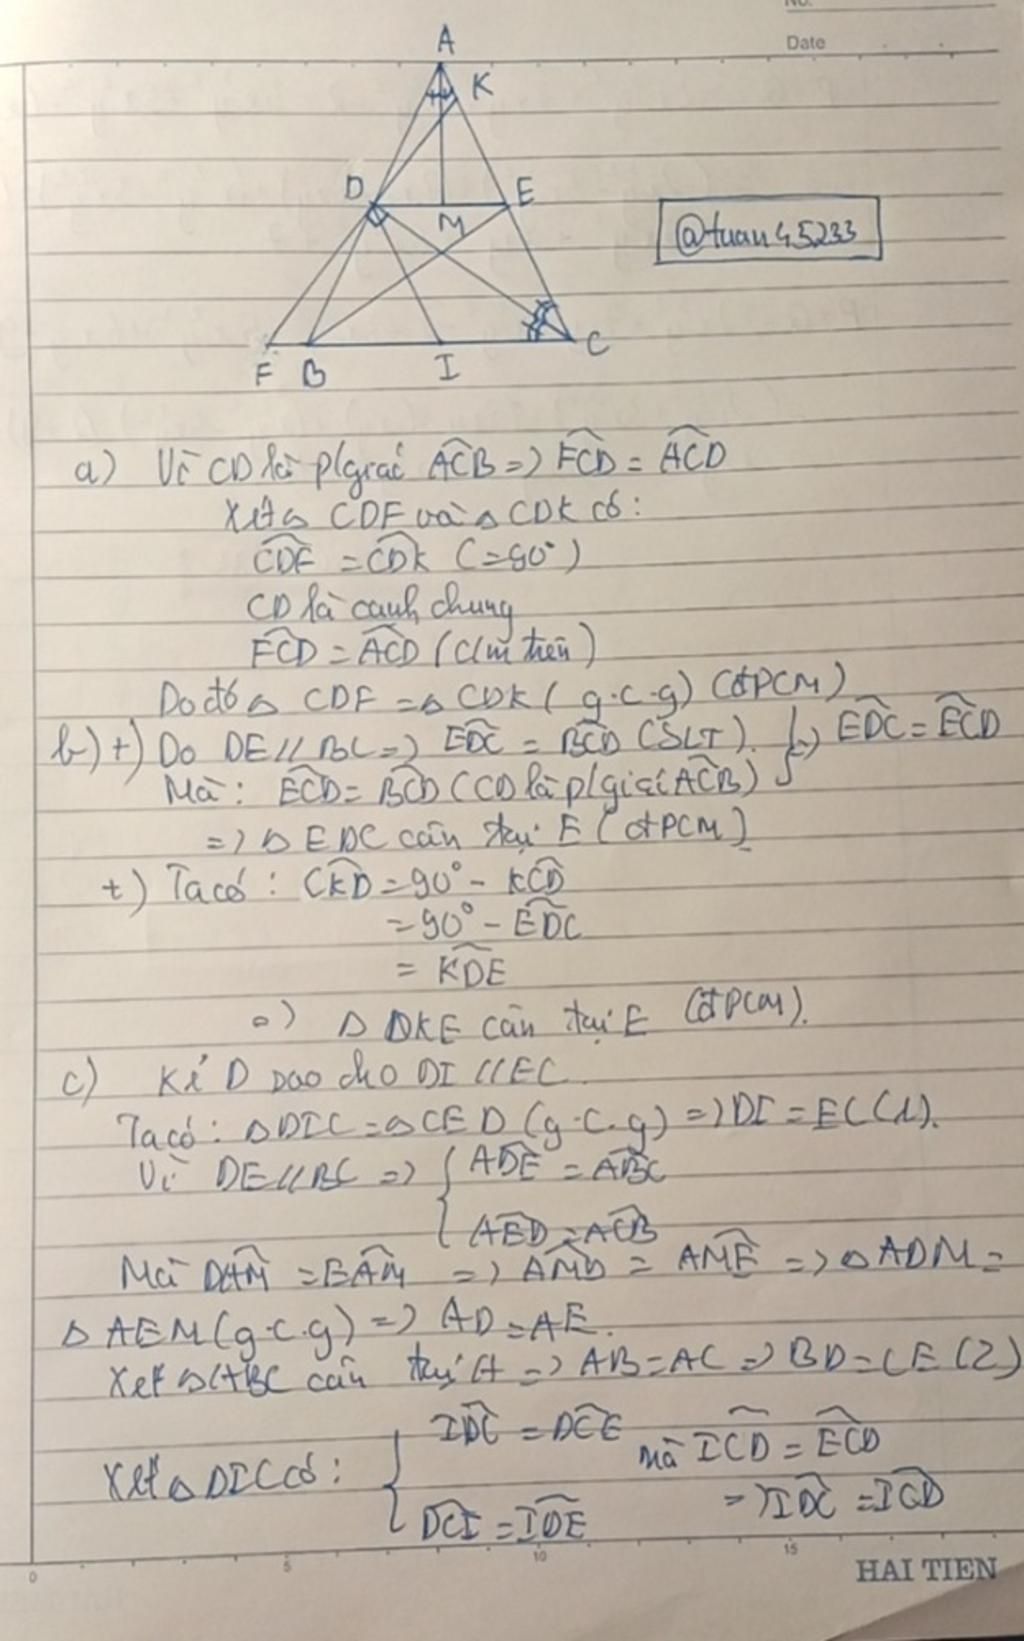 No.
Date
A
K
D
M
E
@tuan45233
F B I C
a) Vì CD là p/giác ACB => FCD = ACD
Xét △ CDF và △ CDK có:
CDF = CDK (=90°)
CD là cạnh chung
FCD = ACD (C/m trên)
Do đó △ CDF = △ CDK (g.c.g) (đPCM)
b) +) Do DE // BC => EDC = BCD (SLT). } => EDC = ECD
Mà: ECD = BCD (CD là p/giác ACB)
=> △ EDC cân tại E (đPCM)
+) Ta có: CKD = 90° - KCD
= 90° - EDC
= KDE
=> △ DKE cân tại E (đPCM).
c) Kẻ D sao cho DI // EC.
Ta có: △DIC = △CED (g.c.g) => DI = EC (1).
Vì DE // BC => { ADE = ABC
AED = ACB
Mà DAM = EAM => AMD = AME => △ ADM =
△ AEM (g.c.g) => AD = AE.
Xét △ABC cân tại A => AB = AC => BD = CE (2)
Xét △ DIC có: { IDC = DCE Mà ICD = ECD
DCI = IDE => IDC = ICD
0 5 10 15
HAI TIEN